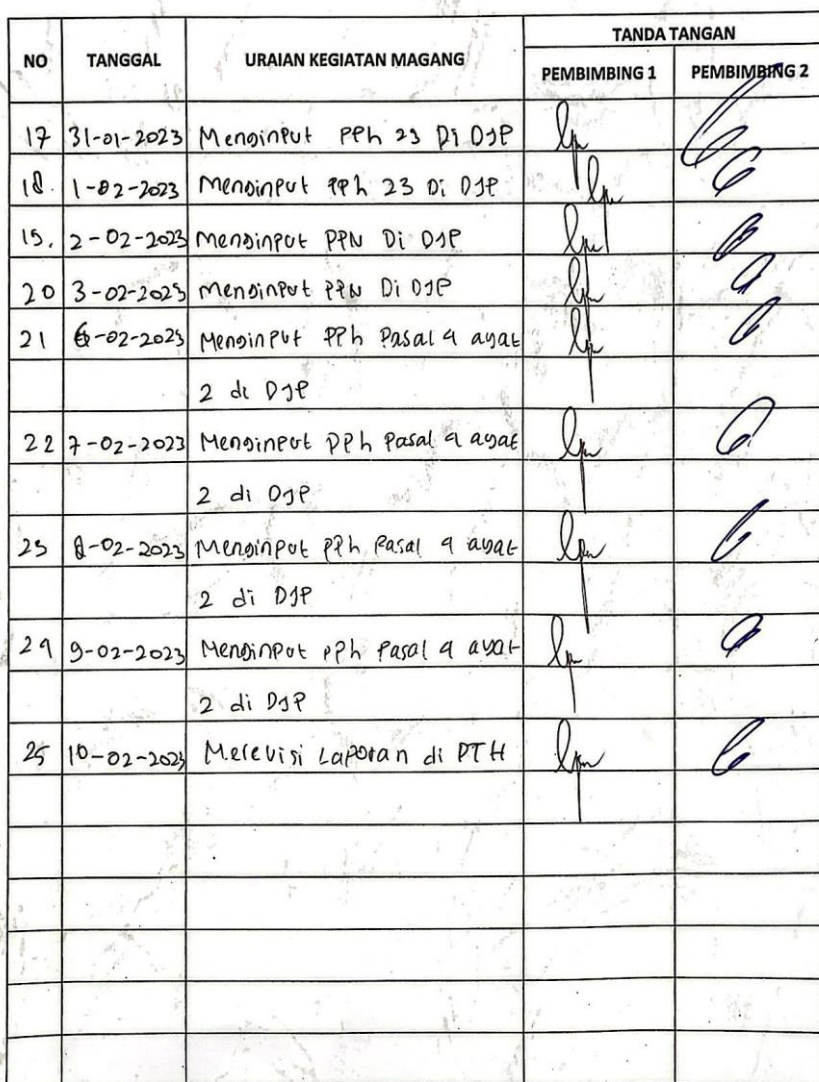 NO TANGGAL URAIAN KEGIATAN MAGANG TANDA TANGAN
PEMBIMBING 1 PEMBIMBING 2
17 31-01-2023 Menginput PPh 23 Di DJP
18. 1-02-2023 Menginput PPh 23 Di DJP
19. 2-02-2023 Menginput PPN Di DJP
20 3-02-2023 Menginput PPN Di DJP
21 6-02-2023 Menginput PPh Pasal 4 ayat
2 di DJP
22 7-02-2023 Menginput PPh Pasal 4 ayat
2 di DJP
23 8-02-2023 Menginput PPh Pasal 4 ayat
2 di DJP
24 9-02-2023 Menginput PPh Pasal 4 ayat
2 di DJP
25 10-02-2023 Merevisi Laporan di PTH